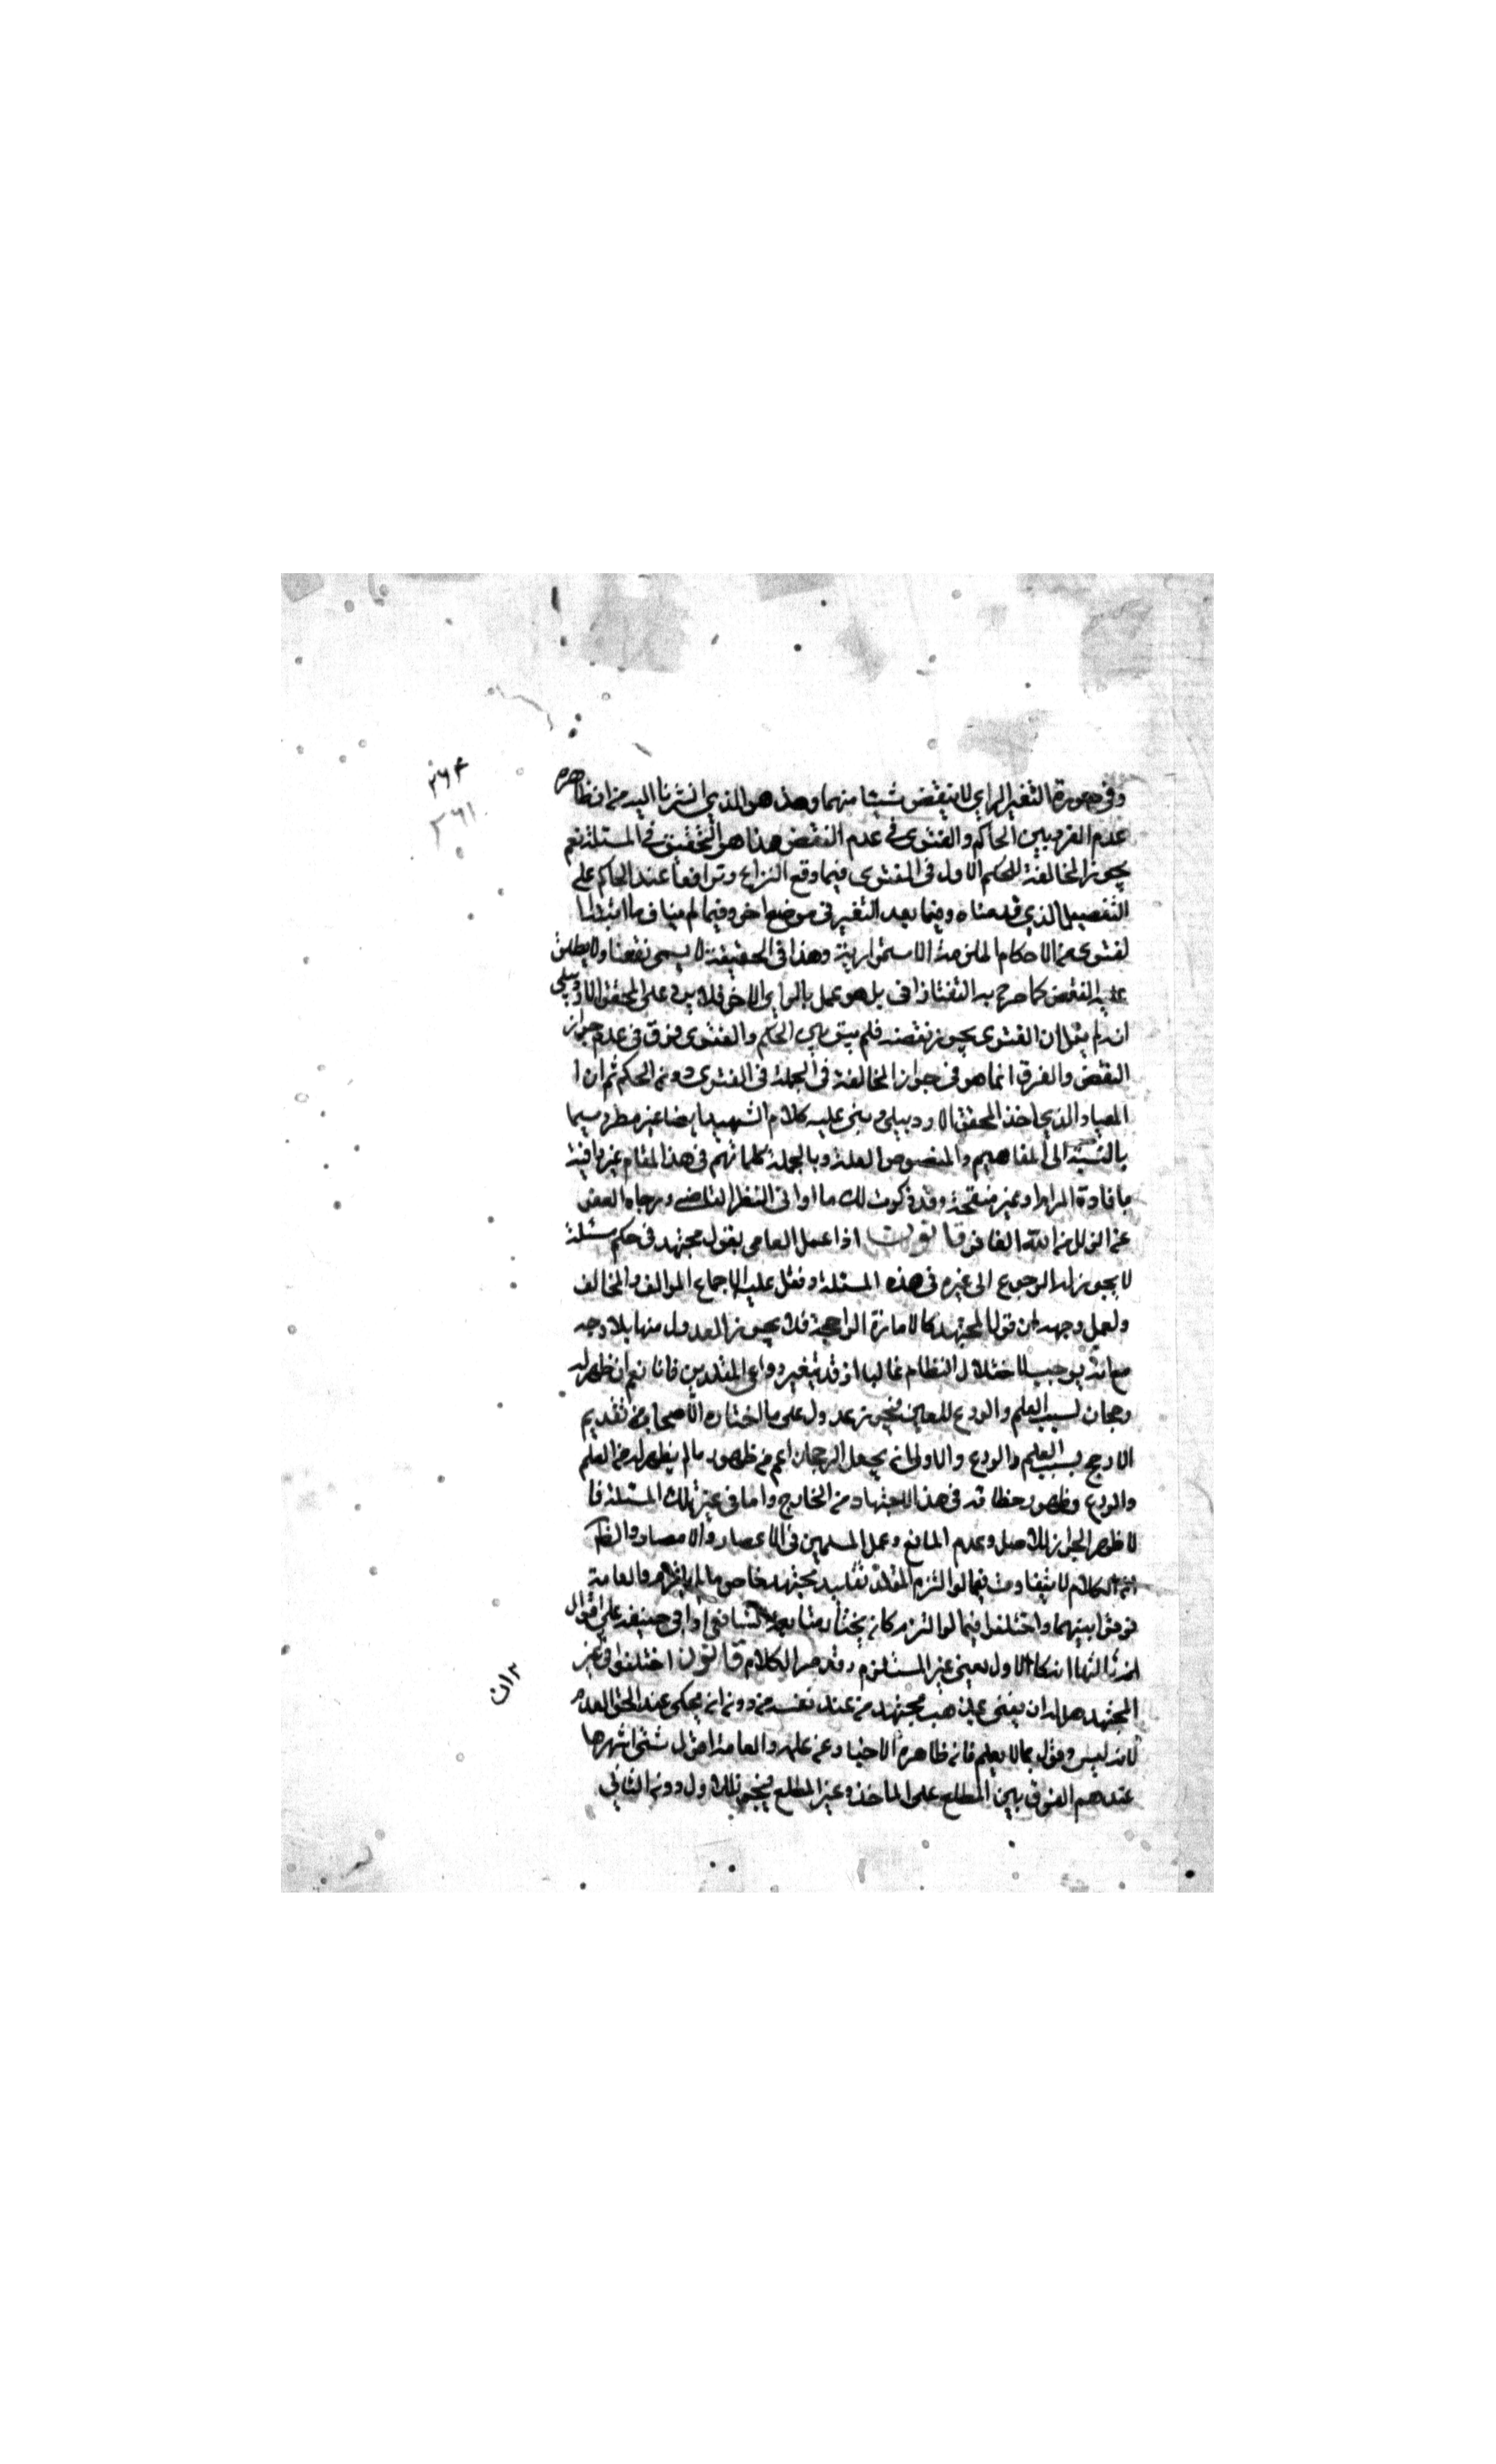 وفي صورة التغير الراي لا ينقض شيئا منهما وهذا هو الذي اشرنا اليه من ان ظاهره
عدم الفرد بين الحاكم والفتوى في عدم النقض هذا هو التحقيق في المسئلة نعم
يجوز المخالفة للحكم الاول في الفتوى فيما وقع النزاع وترافعا عند الحاكم على
التفصيل الذي قدمناه وفيما بعد التغير في موضع اخر وفيما لم يناف ما ابتدا
لفتوى من الاحكام الملزمة الاستمرارية وهذا في الحقيقة لا يسمى نقضا ولا يطلق
عليه النقض كما صرح به التفتازاني بل هو عمل بالراي الاخر فلا يرد على المحقق الاردبيلي
انه لم يقل ان الفتوى يجوز نقضه فلم يبق بين الحكم والفتوى فرق في عدم جواز
النقض والفرق انما هو في جواز المخالفة في الجملة في الفتوى دون الحكم ثم ان ا
المعيار الذي اخذ المحقق الاردبيلي وبنى عليه كلام الشهيد ايضا غير مطرد سيما
بالنسبة الى المفاهيم والمنصوص العلة وبالجملة كلماتهم في هذا المقام غير وافية
بافادة المراد وغير منقحة وقد ذكرت لك ما ادانى النظر القاصي ورجاه العفو
عن الزلل من الله الغافر قانون اذا عمل العامي بقول مجتهد في حكم مسئلة
لا يجوز له الرجوع الى غيره في هذه المسئلة ونقل عليه الاجماع الموالف والمخالف
ولعل وجهه ان قول المجتهد كالامارة الراجحة فلا يجوز العدول منها بلا وجه
مع انه يوجب الاختلال النظام غالبا اذ قد يتغير دواعي المقلدين فانا نعم ان ظهر له
رجحان لسبب العلم والورع للعاين فيجوز عدول على ما اختاره الاصحاب من تقديم
الارجح بسبب العلم والورع والاولى ان يجعل الرجحان اعم من ظهور ما لم يظهر له من العلم
والورع وظهور خطائه في هذا الاجتهاد من الخارج واما في غير تلك المسئلة فا
لا ظهر الجواز للاصل وعدم المانع وعمل المسلمين في الاعصار والامصار والظا
ان الكلام لا يتفاوت فيما لو التزم المقلد تقليد مجتهد خاص ما لم والعامة
فرقوا بينهما واختلفوا فيما لو التزم كان يختار متابعة الشافعي او ابي حنيفة على اقوال
ثالثها انه كالاول يعني غير المستلزم وقد مر الكلام قانون اختلفوا في غير
المجتهد هل له ان يفتي بمذهب مجتهد من عند نفسه من دون ان يحكي عند الحق العدم
لانه ليس وقول بما لا يعلم فانه ظاهره الاخبار عن علمه وللعامة اقوال شتى اشهرها
عندهم الفرق بين المطلع على الماخذ وغير المطلع فيجوز للاول دون الثاني
٣٦٤
٣٦١